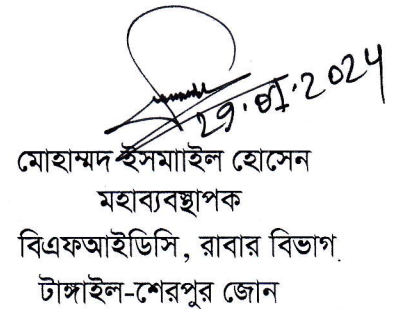 29.01.2024
মোহাম্মদ ইসমাাইল হোসেন
মহাব্যবস্থাপক
বিএফআইডিসি, রাবার বিভাগ.
টাঙ্গাইল-শেরপুর জোন